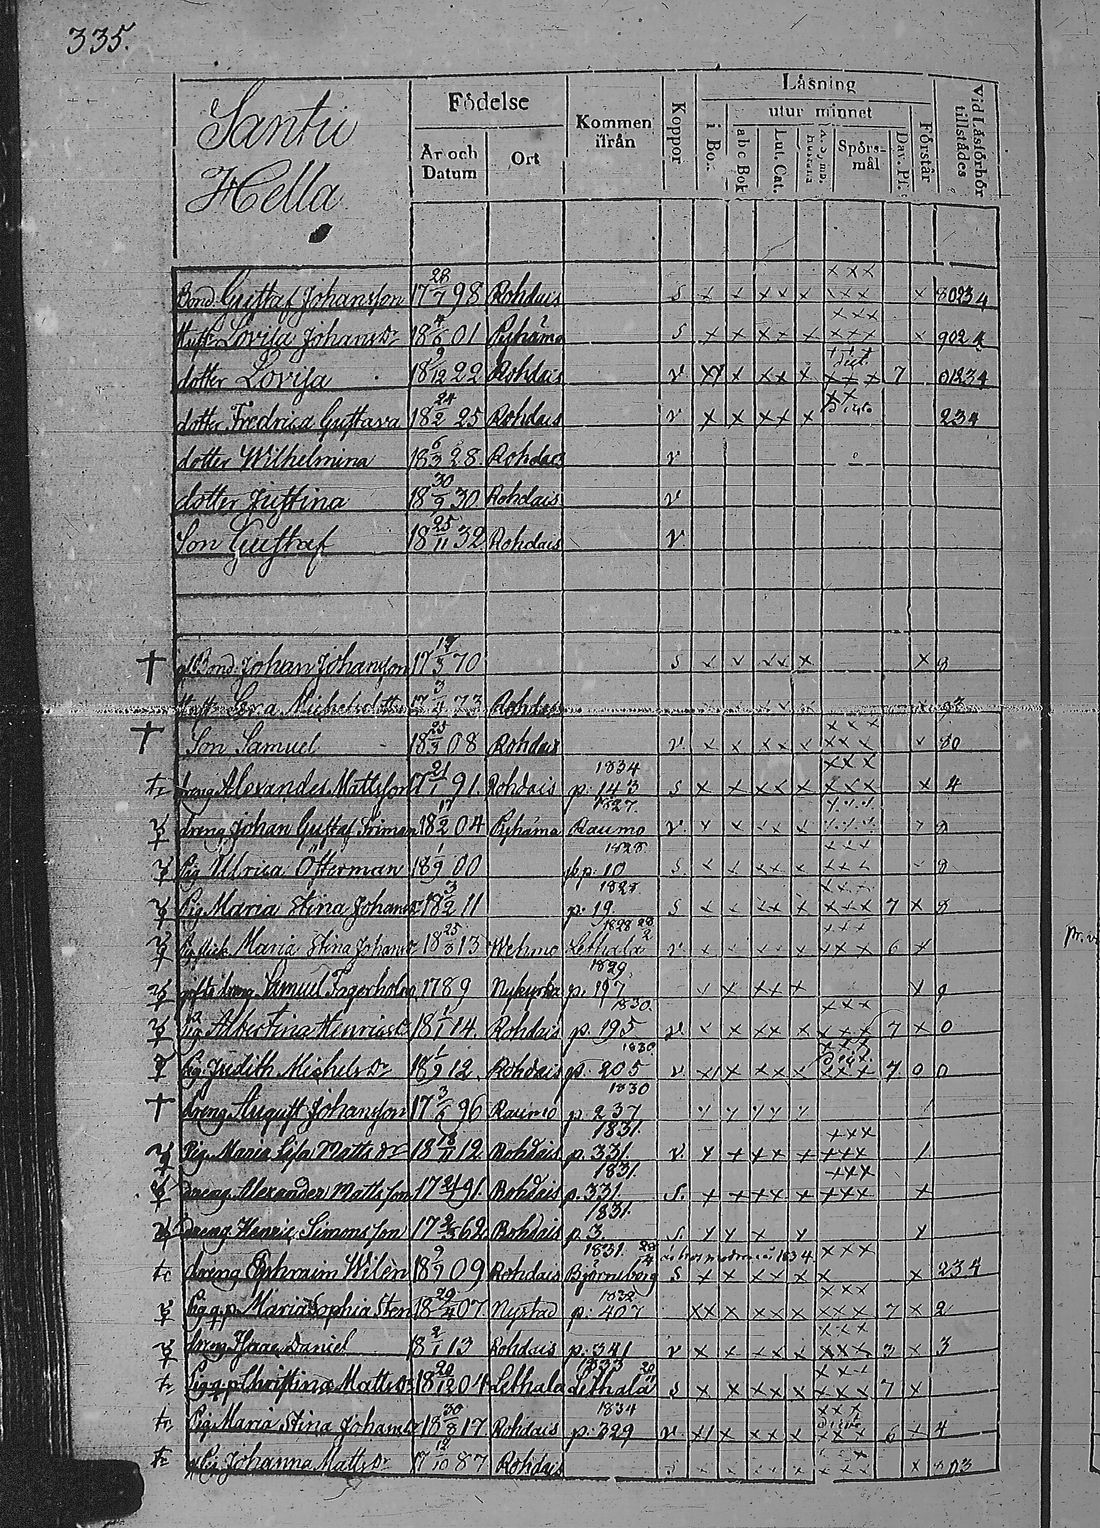 335.
Santu
Hella
Födelse
År och Datum
Ort
Kommen ifrån
Koppor
Låsning
utur minnet
i Bo.
abc Bok
Lut. Cat.
Spörs-mål
Dav. Ps.
Förstår
Vid Låsförhör tillstådes
Bond. Gustaf Johansson 17 28/7 98 Rohdais s x x xx x xxx xxx x 80234
Hust. Lovisa Johansdr 18 4/6 01 Pyhämo s x x xx x xxx xxx x 902 4
dotter Lovisa 18 9/12 22 Rohdais v xx x xx x xxx 7 01234
dotter Fredrica Gustava 18 24/2 25 Rohdais v x x xx x xx 234
dotter Wilhelmina 18 6/3 28 Rohdais v
dotter Justina 18 30/9 30 Rohdais v
Son Gustaf 18 25/11 32 Rohdais v
† Bond. Johan Johansson 17 17/3 70 s x x xx x x 8
Michelsdotter 3 73 Rohdais
† Son Samuel 18 25/9 08 Rohdais v x x xx x xxx xxx x 80
dreng Alexander Mattsson 17 21/1 91. Rohdais 1834 p. 143 s x x xx x xxx xxx x 4
dreng Johan Gustaf Friman 18 17/2 04 Pyhämo 1827. Raumo v x x x x x
Pig. Ulrica Österman 18 1/9 00 1828 p. 10 s x x xx x xxx xxx x 8
Pig. Maria Stina Johansdr 18 3/2 11 p. 19 s x x xx x xxx xxx 7 x 8
Maria Stina Johansdr 18 25/3 13 Wehmo 1828 28/2 Lethala v x x x x x xxx xxx 6 x
dreng Samuel Fagerholm 1789 Nykyrka 1829. p. 197 x x xx x x 9
Pig. Albertina Henricsdr 18 1/1 14. Rohdais 1830. p. 195 v x x xx x xxx xxx 7 x 0
Pig. Judith Michelsdr 18 1/9 12 Rohdais 1830 p. 205 v x x xx x xxx xxx 7 0 0
† dreng August Johansson 17 3/6 96 Raumo 1830 p. 237
Pig. Maria Lisa Mattsdr 18 18/11 12 Rohdais 1831. p. 331 v x x xx x xxx xxx
dreng Alexander Mattsson 17 21/1 91. Rohdais 1831 p. 331. s. x x xx x xxx xxx x
dreng Henric Simonsson 17 62 Rohdais 1831. p. 3. s. x x x x x
dreng Ephraim Wilén 18 9/9 09 Rohdais 1831. 29/4 Björneborg 1834 s x x xx x x xxx x 234
Pig. Maria Sophia Sten 18 29/2 07 Nystad 1832 p. 407 xx x xx x xxx xxx 7 x 2
dreng Isaac Daniel 18 2/1 13 Rohdais p. 341 v x x xx x xxx xxx 3 x 3
Pig. Christina Mattsdr 18 20/12 04 Lethala 1833 20 Lethala s x x xx x xxx xxx 7 x
Pig. Maria Stina Johansdr 18 30/8 17 Rohdais 1834 p. 329 v xx x xx x xxx xxx 6 x 4
Johanna Mattsdr 17 12/10 87 Rohdais